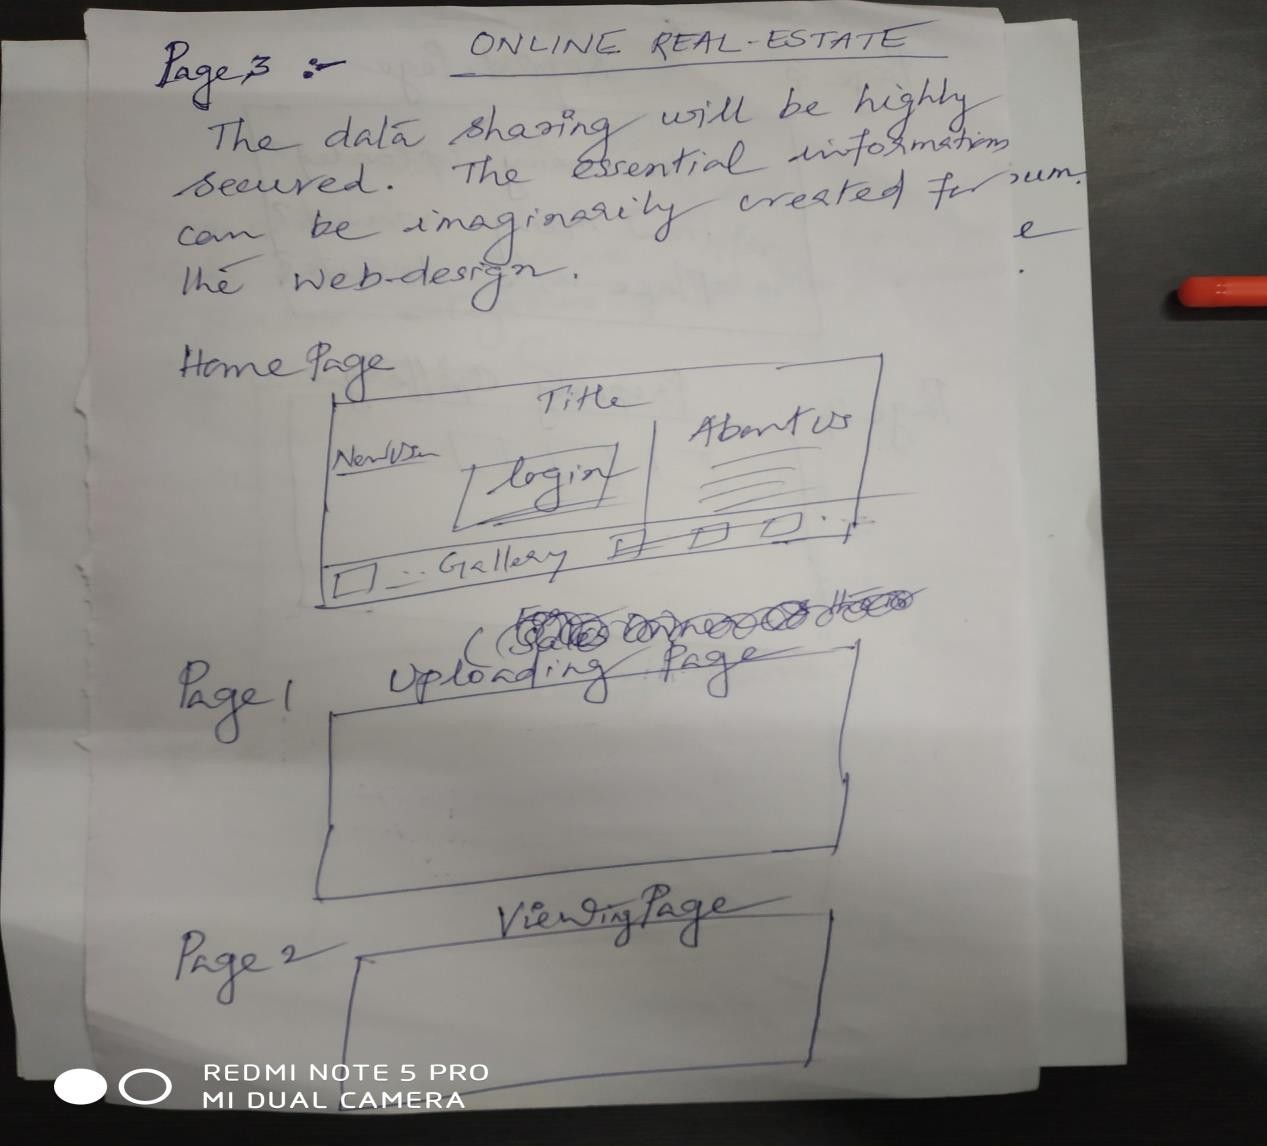 Page 3 :-
ONLINE REAL-ESTATE
The data sharing will be highly
secured. The essential information
can be imaginarily created for
the web-design.
Home Page
Title
New User
login
About us
Gallery
Page 1
Uploading Page
Page 2
Viewing Page
REDMI NOTE 5 PRO
MI DUAL CAMERA